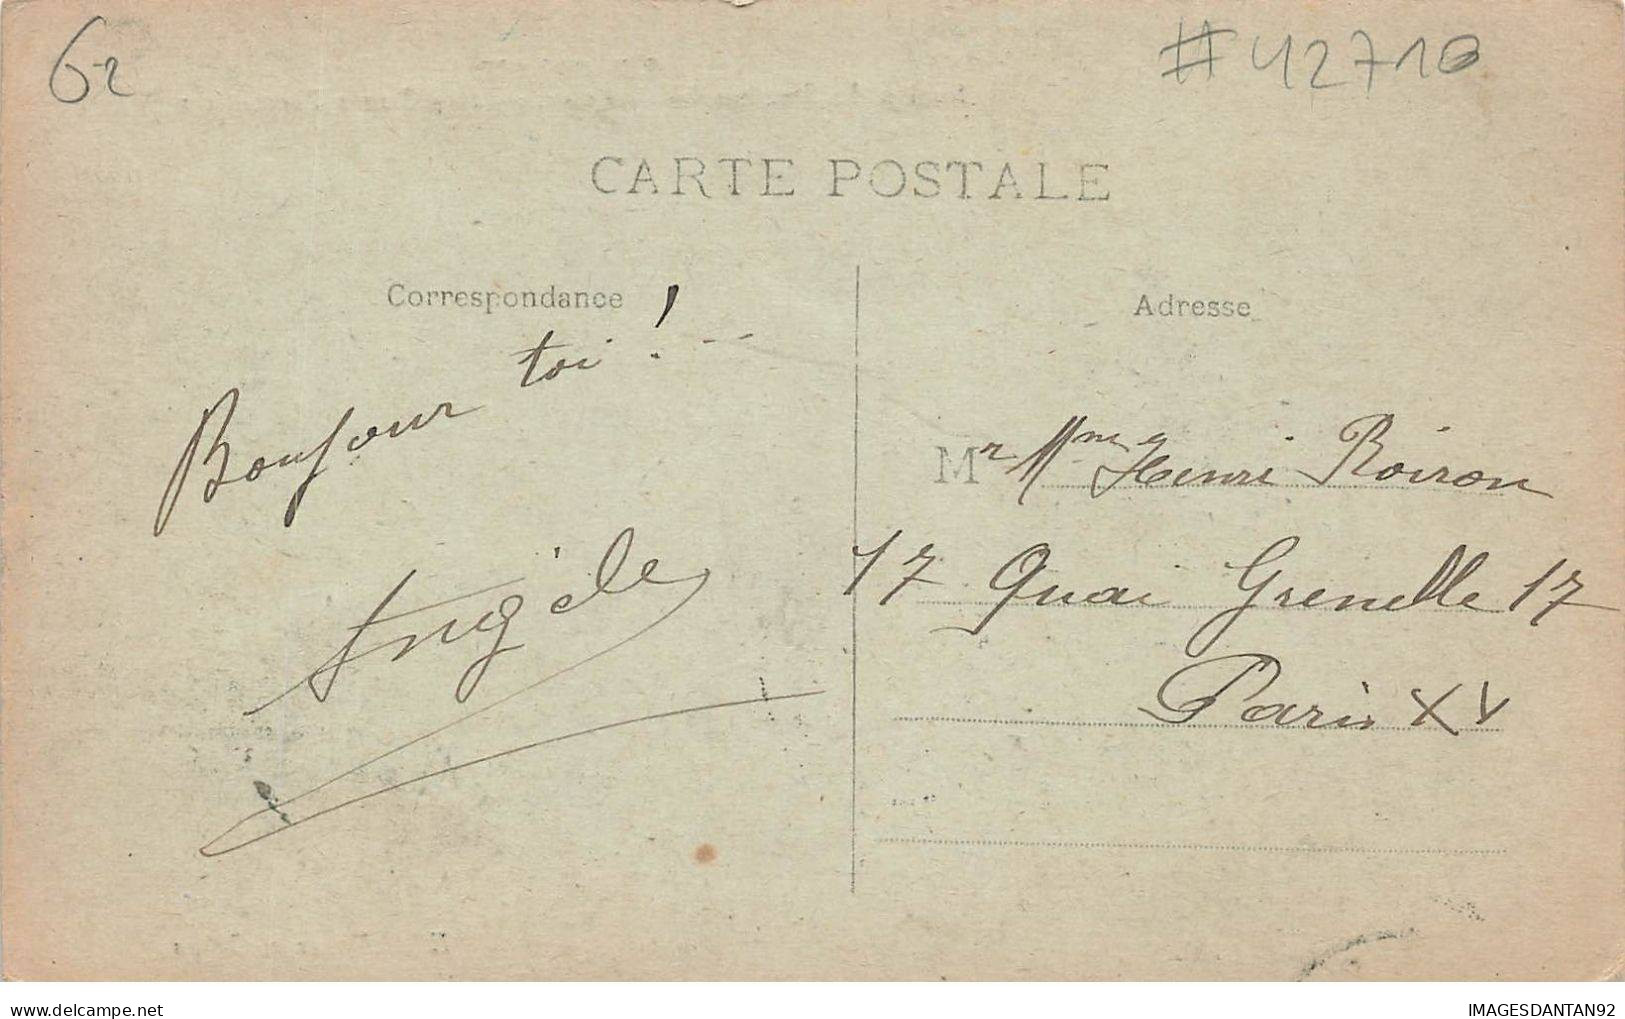 62
#42710
CARTE POSTALE
Correspondance
Adresse
Bonjour toi ! --
Angèle
Mr Mme Henri Roiron
17 Quai Grenelle 17
Paris XV
delcampe.net
IMAGESDANTAN92